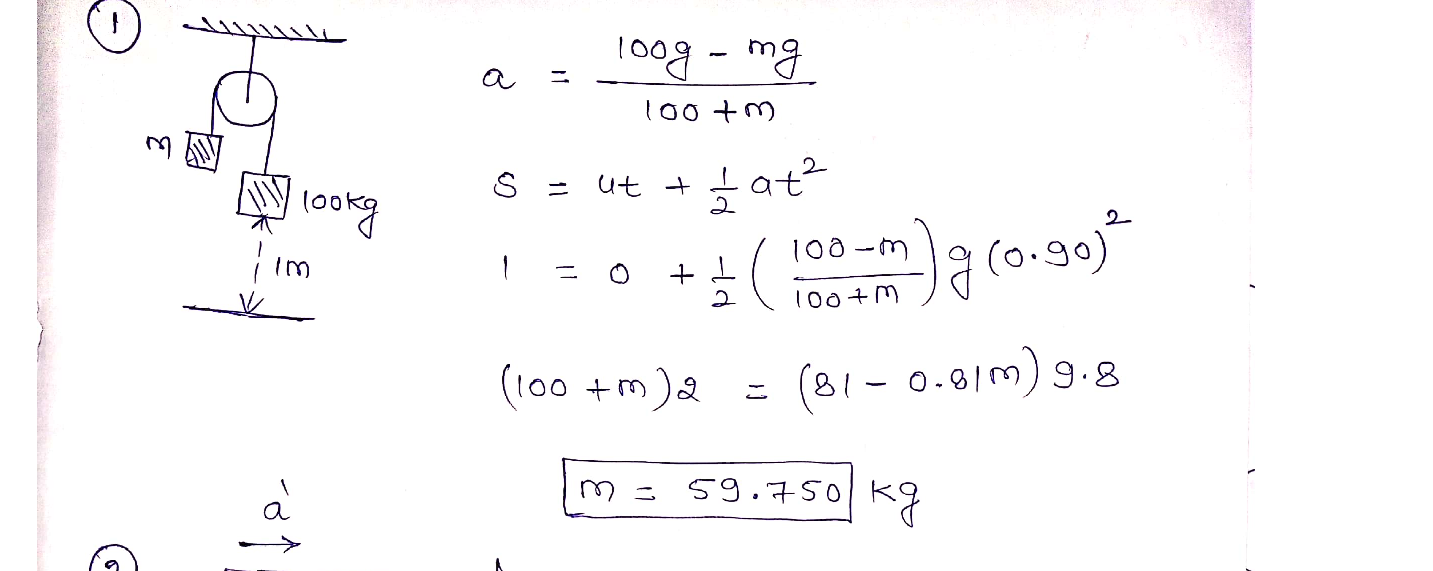 ①
a = (100g - mg) / (100 + m)
m
100kg
1m
S = ut + ½ at²
1 = 0 + ½ ((100 - m) / (100 + m)) g (0.90)²
(100 + m) 2 = (81 - 0.81m) 9.8
m = 59.750 kg
a'